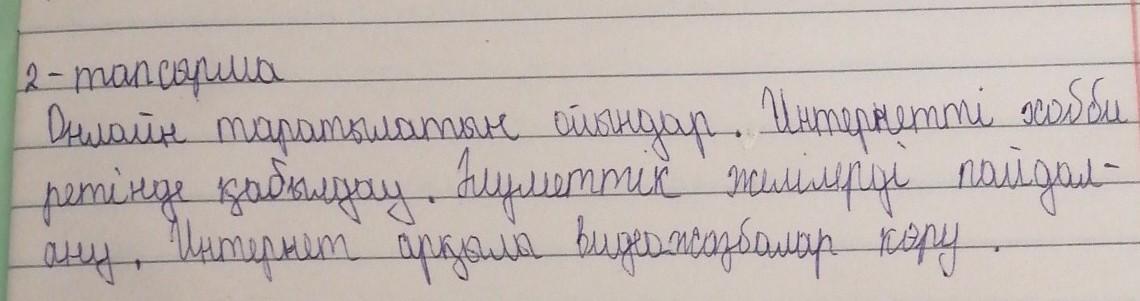 2-тапсырма
Онлайн таратылатын ойындар. Интернетті хобби
ретінде қабылдау. Әлуметтік желілерді пайдал-
ану. Интернет арқылы видеожазбалар көру.